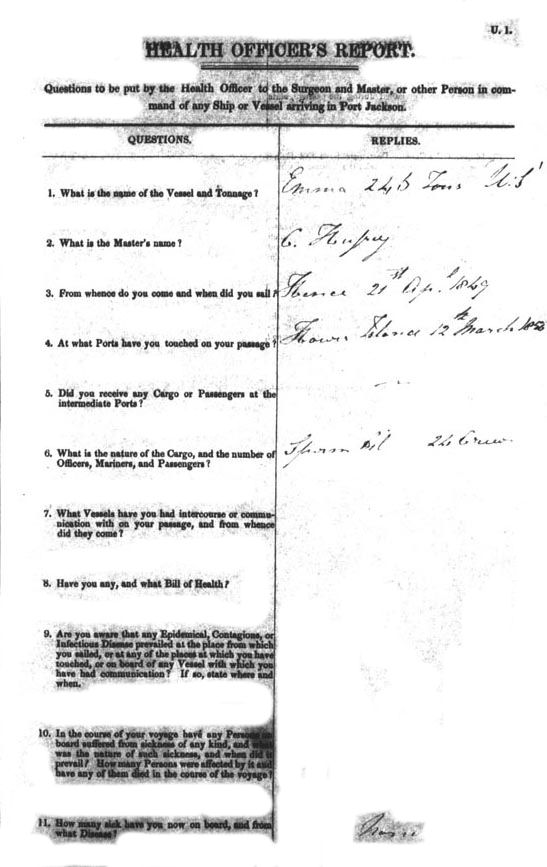 U. 1.
HEALTH OFFICER'S REPORT.
Questions to be put by the Health Officer to the Surgeon and Master, or other Person in com-
mand of any Ship or Vessel arriving in Port Jackson.
QUESTIONS. REPLIES.
1. What is the name of the Vessel and Tonnage? Emma 243 Tons
2. What is the Master's name? C.
3. From whence do you come and when did you sail? Hence 21st Apl 1849
4. At what Ports have you touched on your passage? Howes Island 12th March 1850
5. Did you receive any Cargo or Passengers at the
intermediate Ports?
6. What is the nature of the Cargo, and the number of Sperm Oil 24 Crew.
Officers, Mariners, and Passengers?
7. What Vessels have you had intercourse or commu-
nication with on your passage, and from whence
did they come?
8. Have you any, and what Bill of Health?
9. Are you aware that any Epidemical, Contagious, or
Infectious Disease prevailed at the place from which
you sailed, or at any of the places at which you have
touched, or on board of any Vessel with which you
have had communication? If so, state where and
when.
10. In the course of your voyage have any Persons on
board suffered from sickness of any kind, and what
was the nature of such sickness, and when did it
prevail? How many Persons were affected by it and
have any of them died in the course of the voyage?
11. How many sick have you now on board, and from None
what Disease?